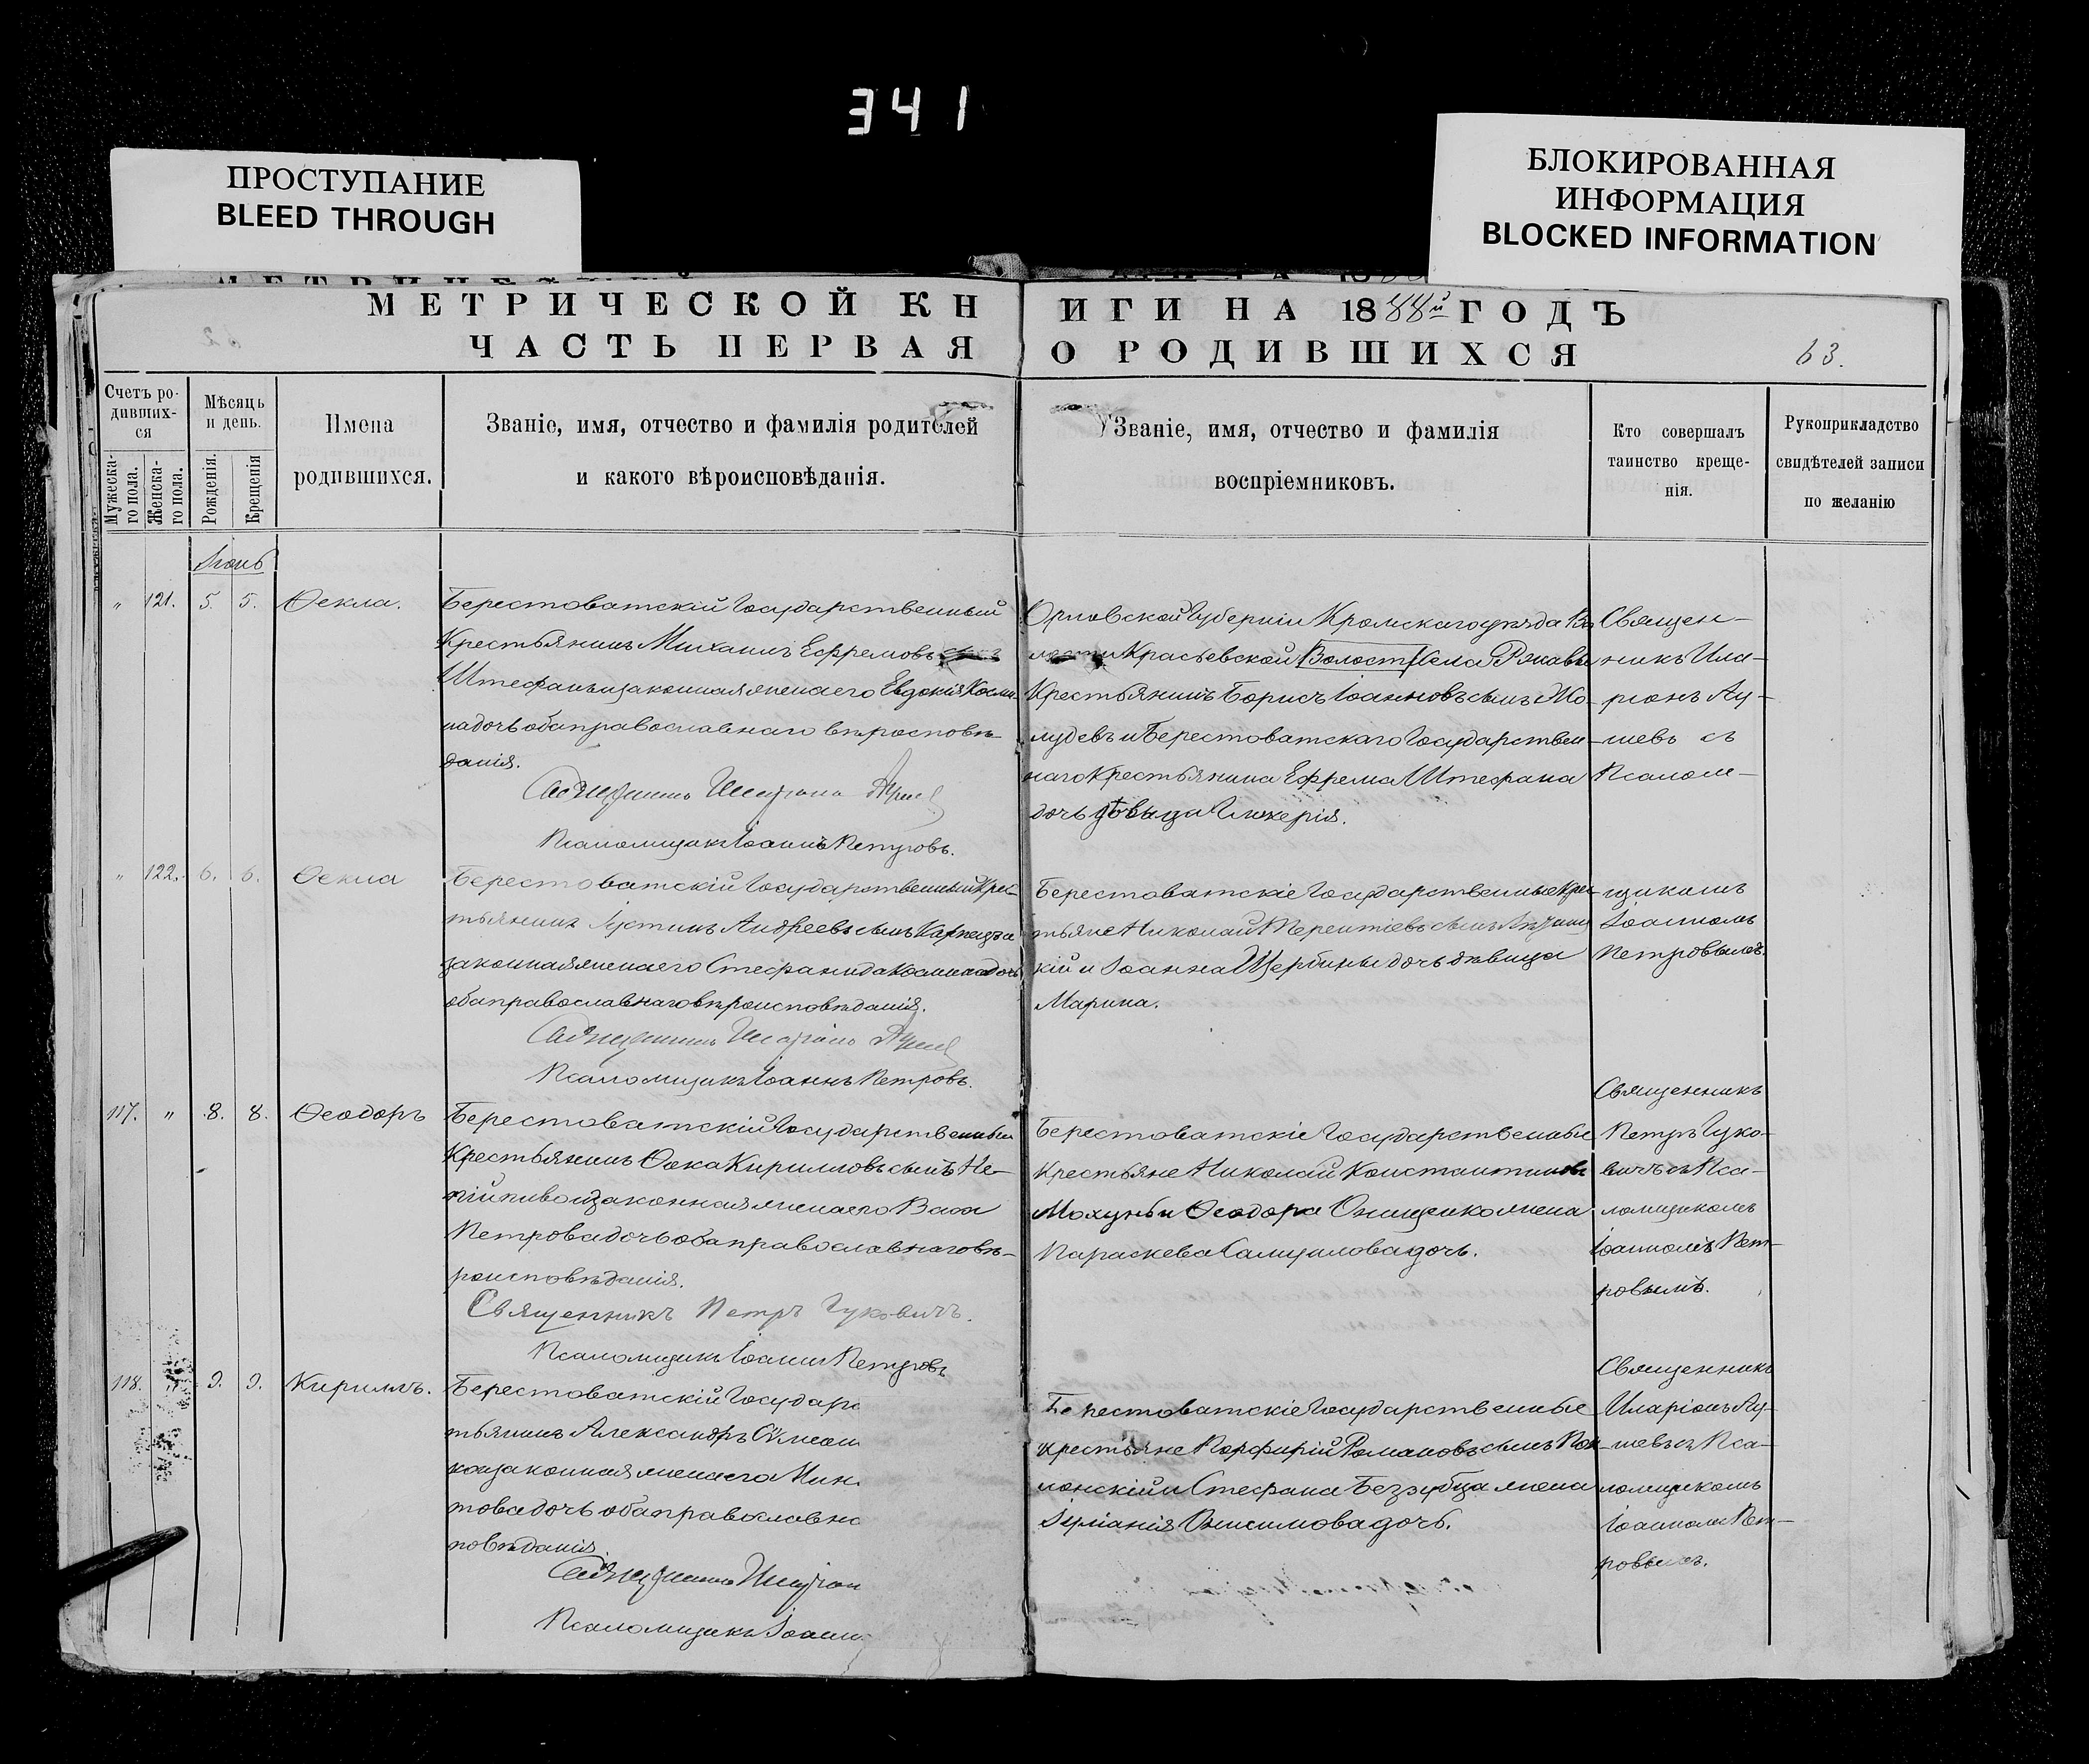 341
ПРОСТУПАНИЕ
BLEED THROUGH
БЛОКИРОВАННАЯ
ИНФОРМАЦИЯ
BLOCKED INFORMATION
МЕТРИЧЕСКОЙ КН
ЧАСТЬ ПЕРВАЯ
ИГИ НА 1888й ГОДЪ
О РОДИВШИХСЯ
63.
Счетъ ро-
дивших-
ся
Мужеска-
го пола.
Женска-
го пола.
Мѣсяць
и день.
Рожденія.
Крещенія
Имена
родившихся.
Званіе, имя, отчество и фамилія родителей
и какого вѣроисповѣданія.
Званіе, имя, отчество и фамилія
воспріемниковъ.
Кто совершалъ
таинство креще-
нія.
Рукоприкладство
свидѣтелей записи
по желанію
Іюнь
" 121. 5. 5. Ѳекла.
Берестоватскій Государственный
Крестьянинъ Михаилъ Ефремовъ
Штефанъ и законная жена его Евдокія Косми-
на дочь оба православнаго вѣроисповѣ-
данія.
Священникъ Иларіонъ
Псаломщикъ Іоаннъ Петровъ.
Орловской Губерніи Кромскаго уѣзда Во
Красьевской Волости села
Крестьянинъ Борисъ Іоанновъ сынъ Жо-
лудевъ и Берестоватскаго Государствен-
наго Крестьянина Ефрема Штефана
дочь дѣвица Гликерія.
Священ-
никъ Ила-
ріонъ Ау-
шевъ съ
Псалом-
" 122. 6. 6. Ѳекла
Берестоватскій Государственный Крес-
тьянинъ Іустинъ Андреевъ сынъ
законная жена его Стефанида Космина дочь
оба православнаго вѣроисповѣданія.
Священникъ Иларіонъ
Псаломщикъ Іоаннъ Петровъ.
Берестоватскіе Государственные Крес-
тьяне Николай Терентіевъ сынъ
кій и Іоанна Щербины дочь дѣвица
Марина.
щикомъ
Іоанномъ
Петровымъ.
117. " 8. 8. Ѳеодоръ
Берестоватскій Государственный
Крестьянинъ Ѳока Кирилловъ сынъ Не-
пійпиво и законная жена его Васса
Петрова дочь оба православнаго вѣ-
роисповѣданія.
Священникъ Петръ Гуковичъ.
Псаломщикъ Іоаннъ Петровъ
Берестоватскіе Государственные
Крестьяне Николай Константиновъ
Мохунь и Ѳеодора Онищенко жена
Параскева Самуилова дочь.
Священникъ
Петръ Гуко-
вичъ съ Пса-
ломщикомъ
Іоанномъ Пет-
ровымъ.
118. " 9. 9. Кириллъ.
Берестоватскій Государс
тьянинъ Александръ Симеон
ко и законная жена его Мин.
това дочь оба православна
повѣданія.
Священникъ Иларіон
Псаломщикъ Іоанн
Берестоватскіе Государственные
крестьяне Порфирій Романовъ сынъ Пок-
лонскій и Стефана Беззубца жена
Іуліанія Онисимова дочь.
Священникъ
Иларіонъ Ау-
шевъ съ Пса-
ломщикомъ
Іоанномъ Пет-
ровымъ.